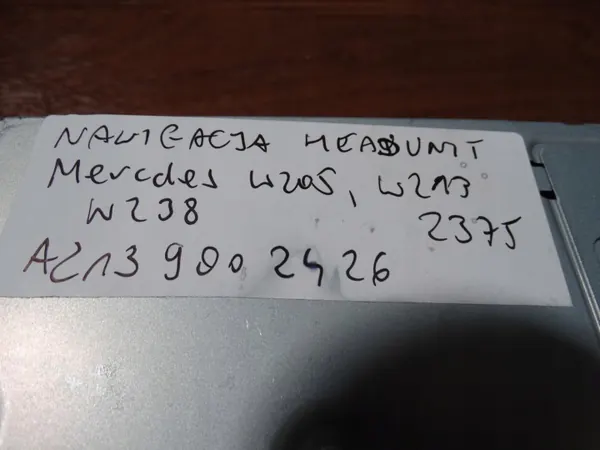 NAWIGACJA HEADUNIT
Mercdes W205, W213
W238 2375
A213 900 24 26